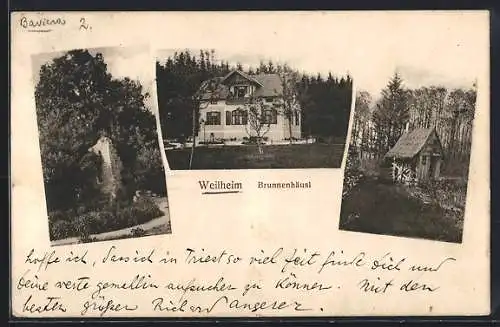 Baviera 2.
Weilheim Brunnenhäusl
hoffe ich, dass ich in Triest so viel Zeit finde Dich und
Deine werte Gemahlin aufsuchen zu können. Mit den
besten Grüßen Richard Angerer.